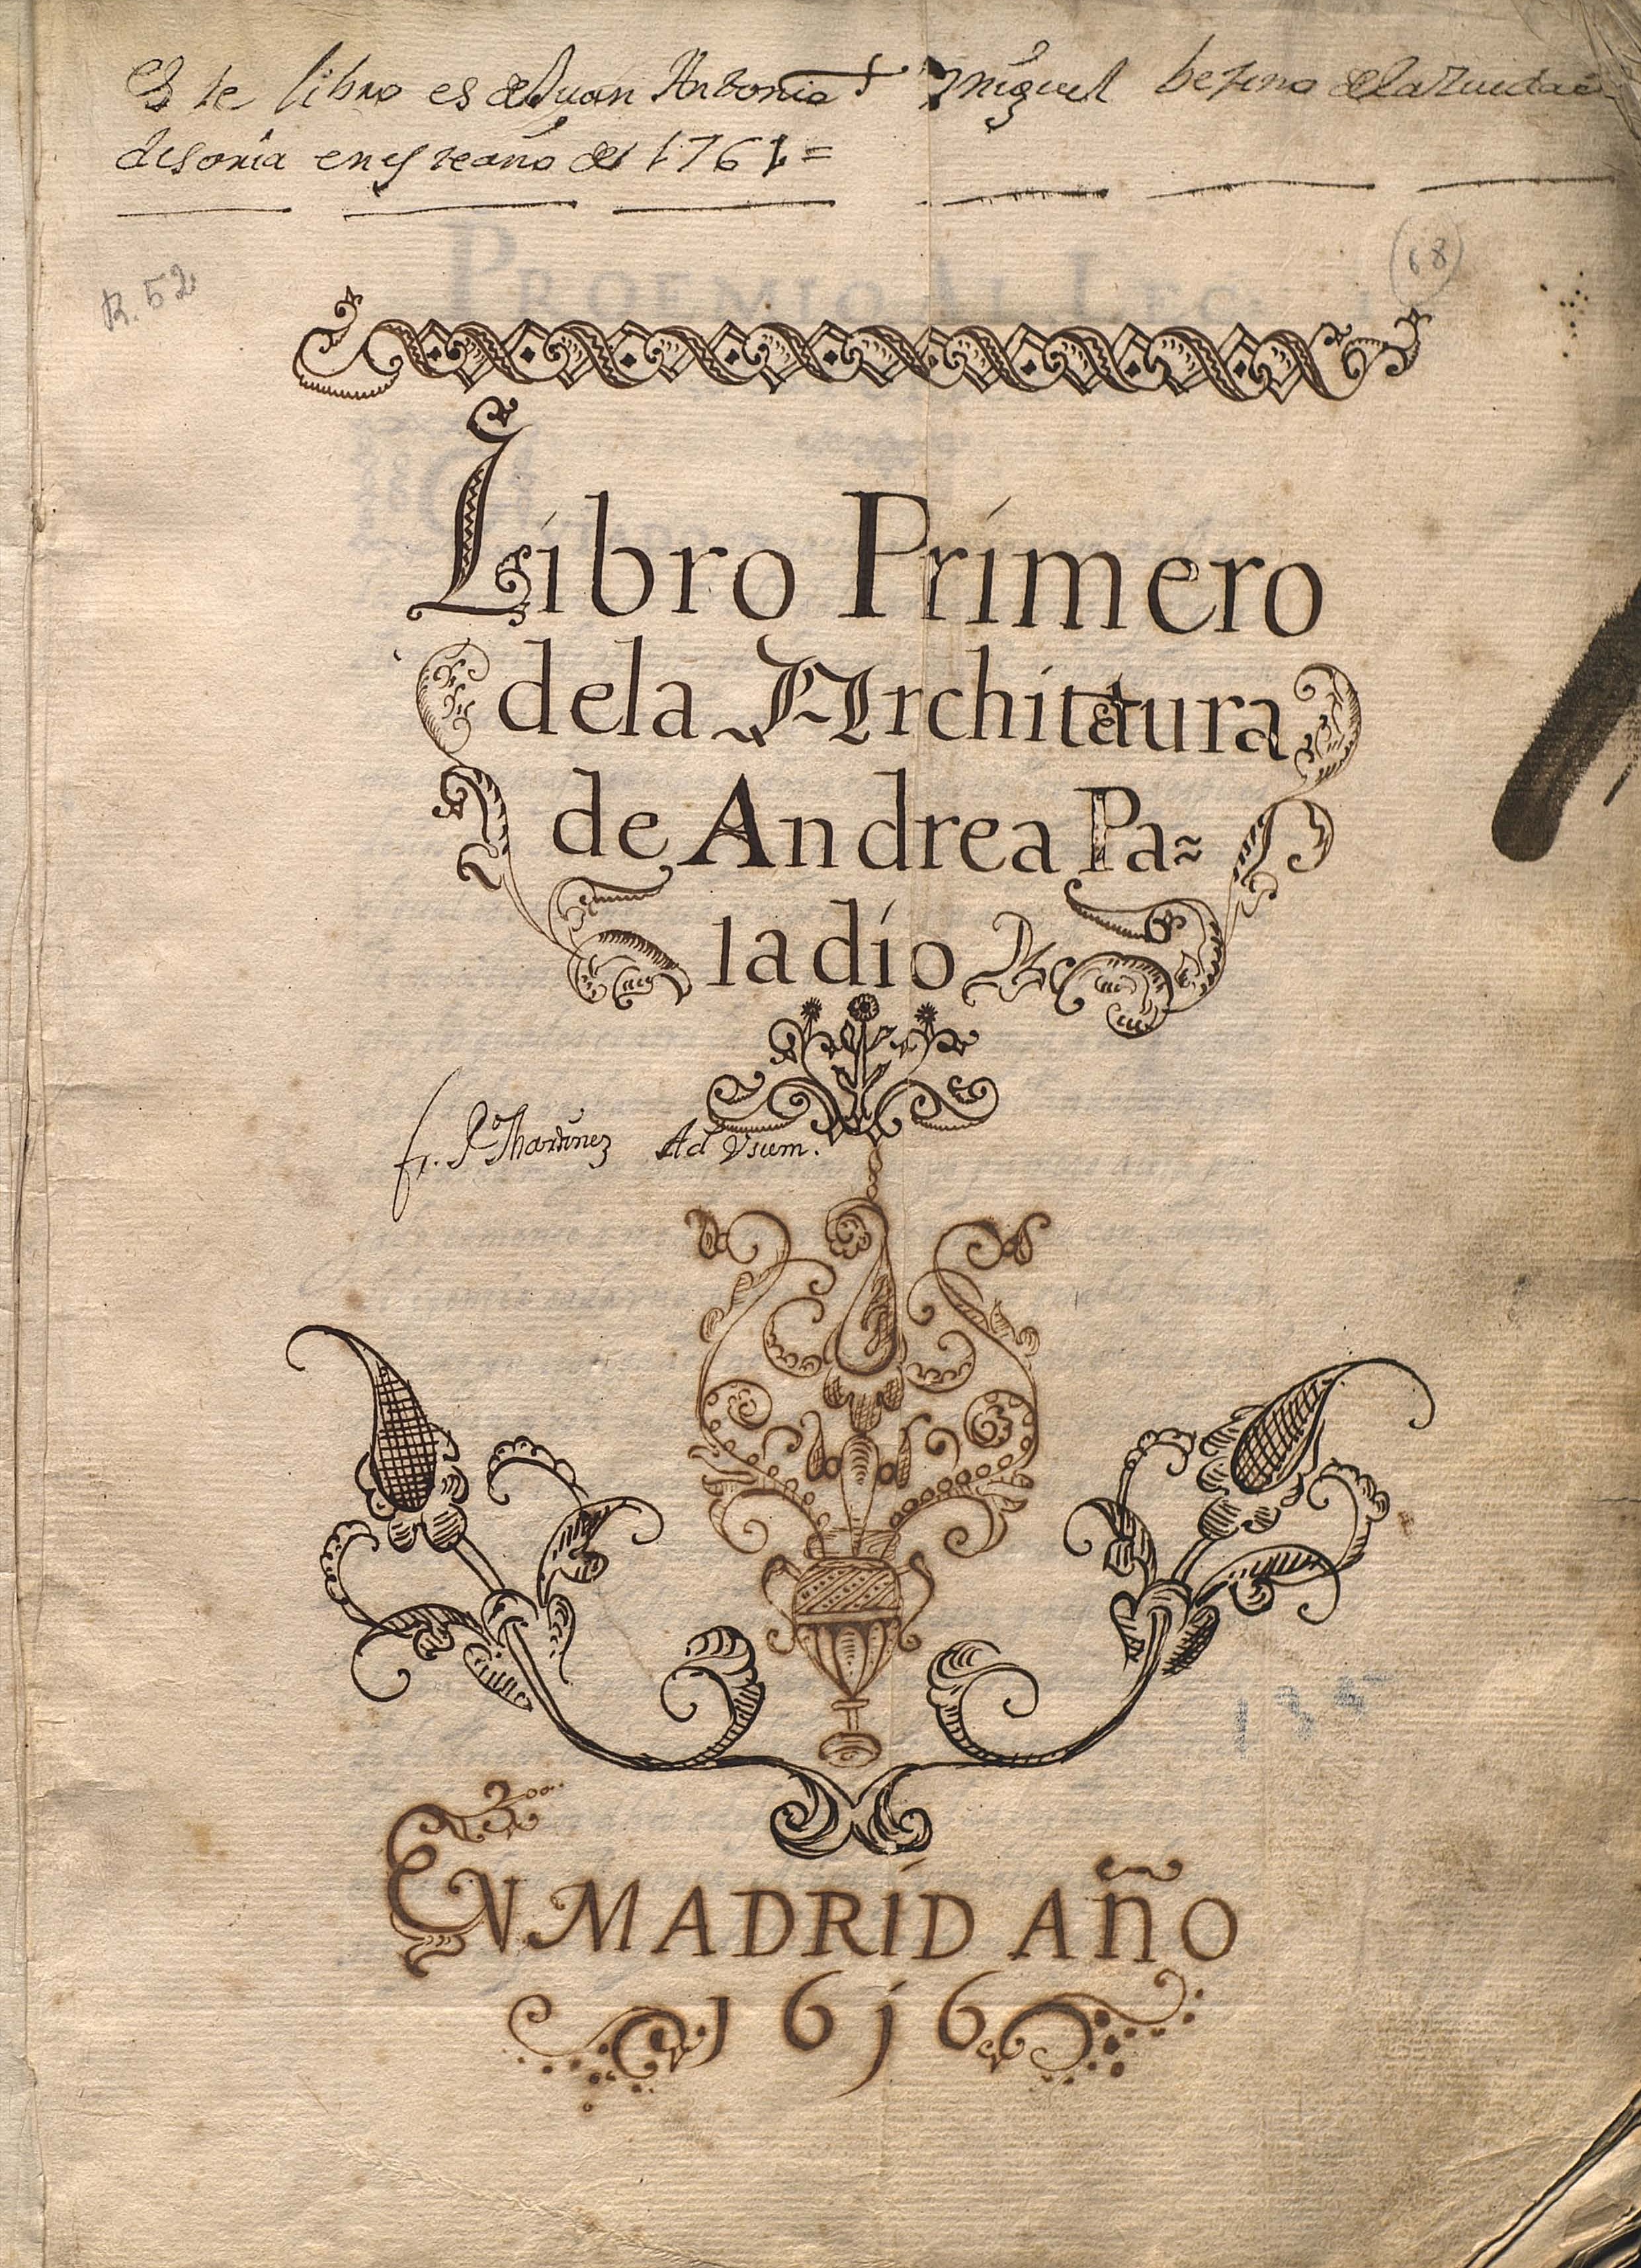 Este libro es de Juan Antonio Miguel bezino de la Ziudad
de soria en este año de 1761=
R. 52
68
PROEMIO AL LEC
Libro Primero
dela Architectura
de Andrea Pa~
ladio
fr. P.o Martinez Ad Usum.
135
EN MADRID AÑO
1616